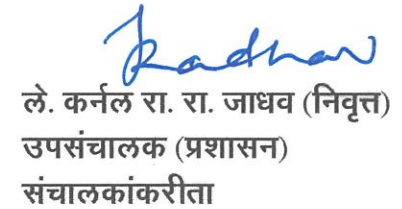 ले. कर्नल रा. रा. जाधव (निवृत्त)
उपसंचालक (प्रशासन)
संचालकांकरीता